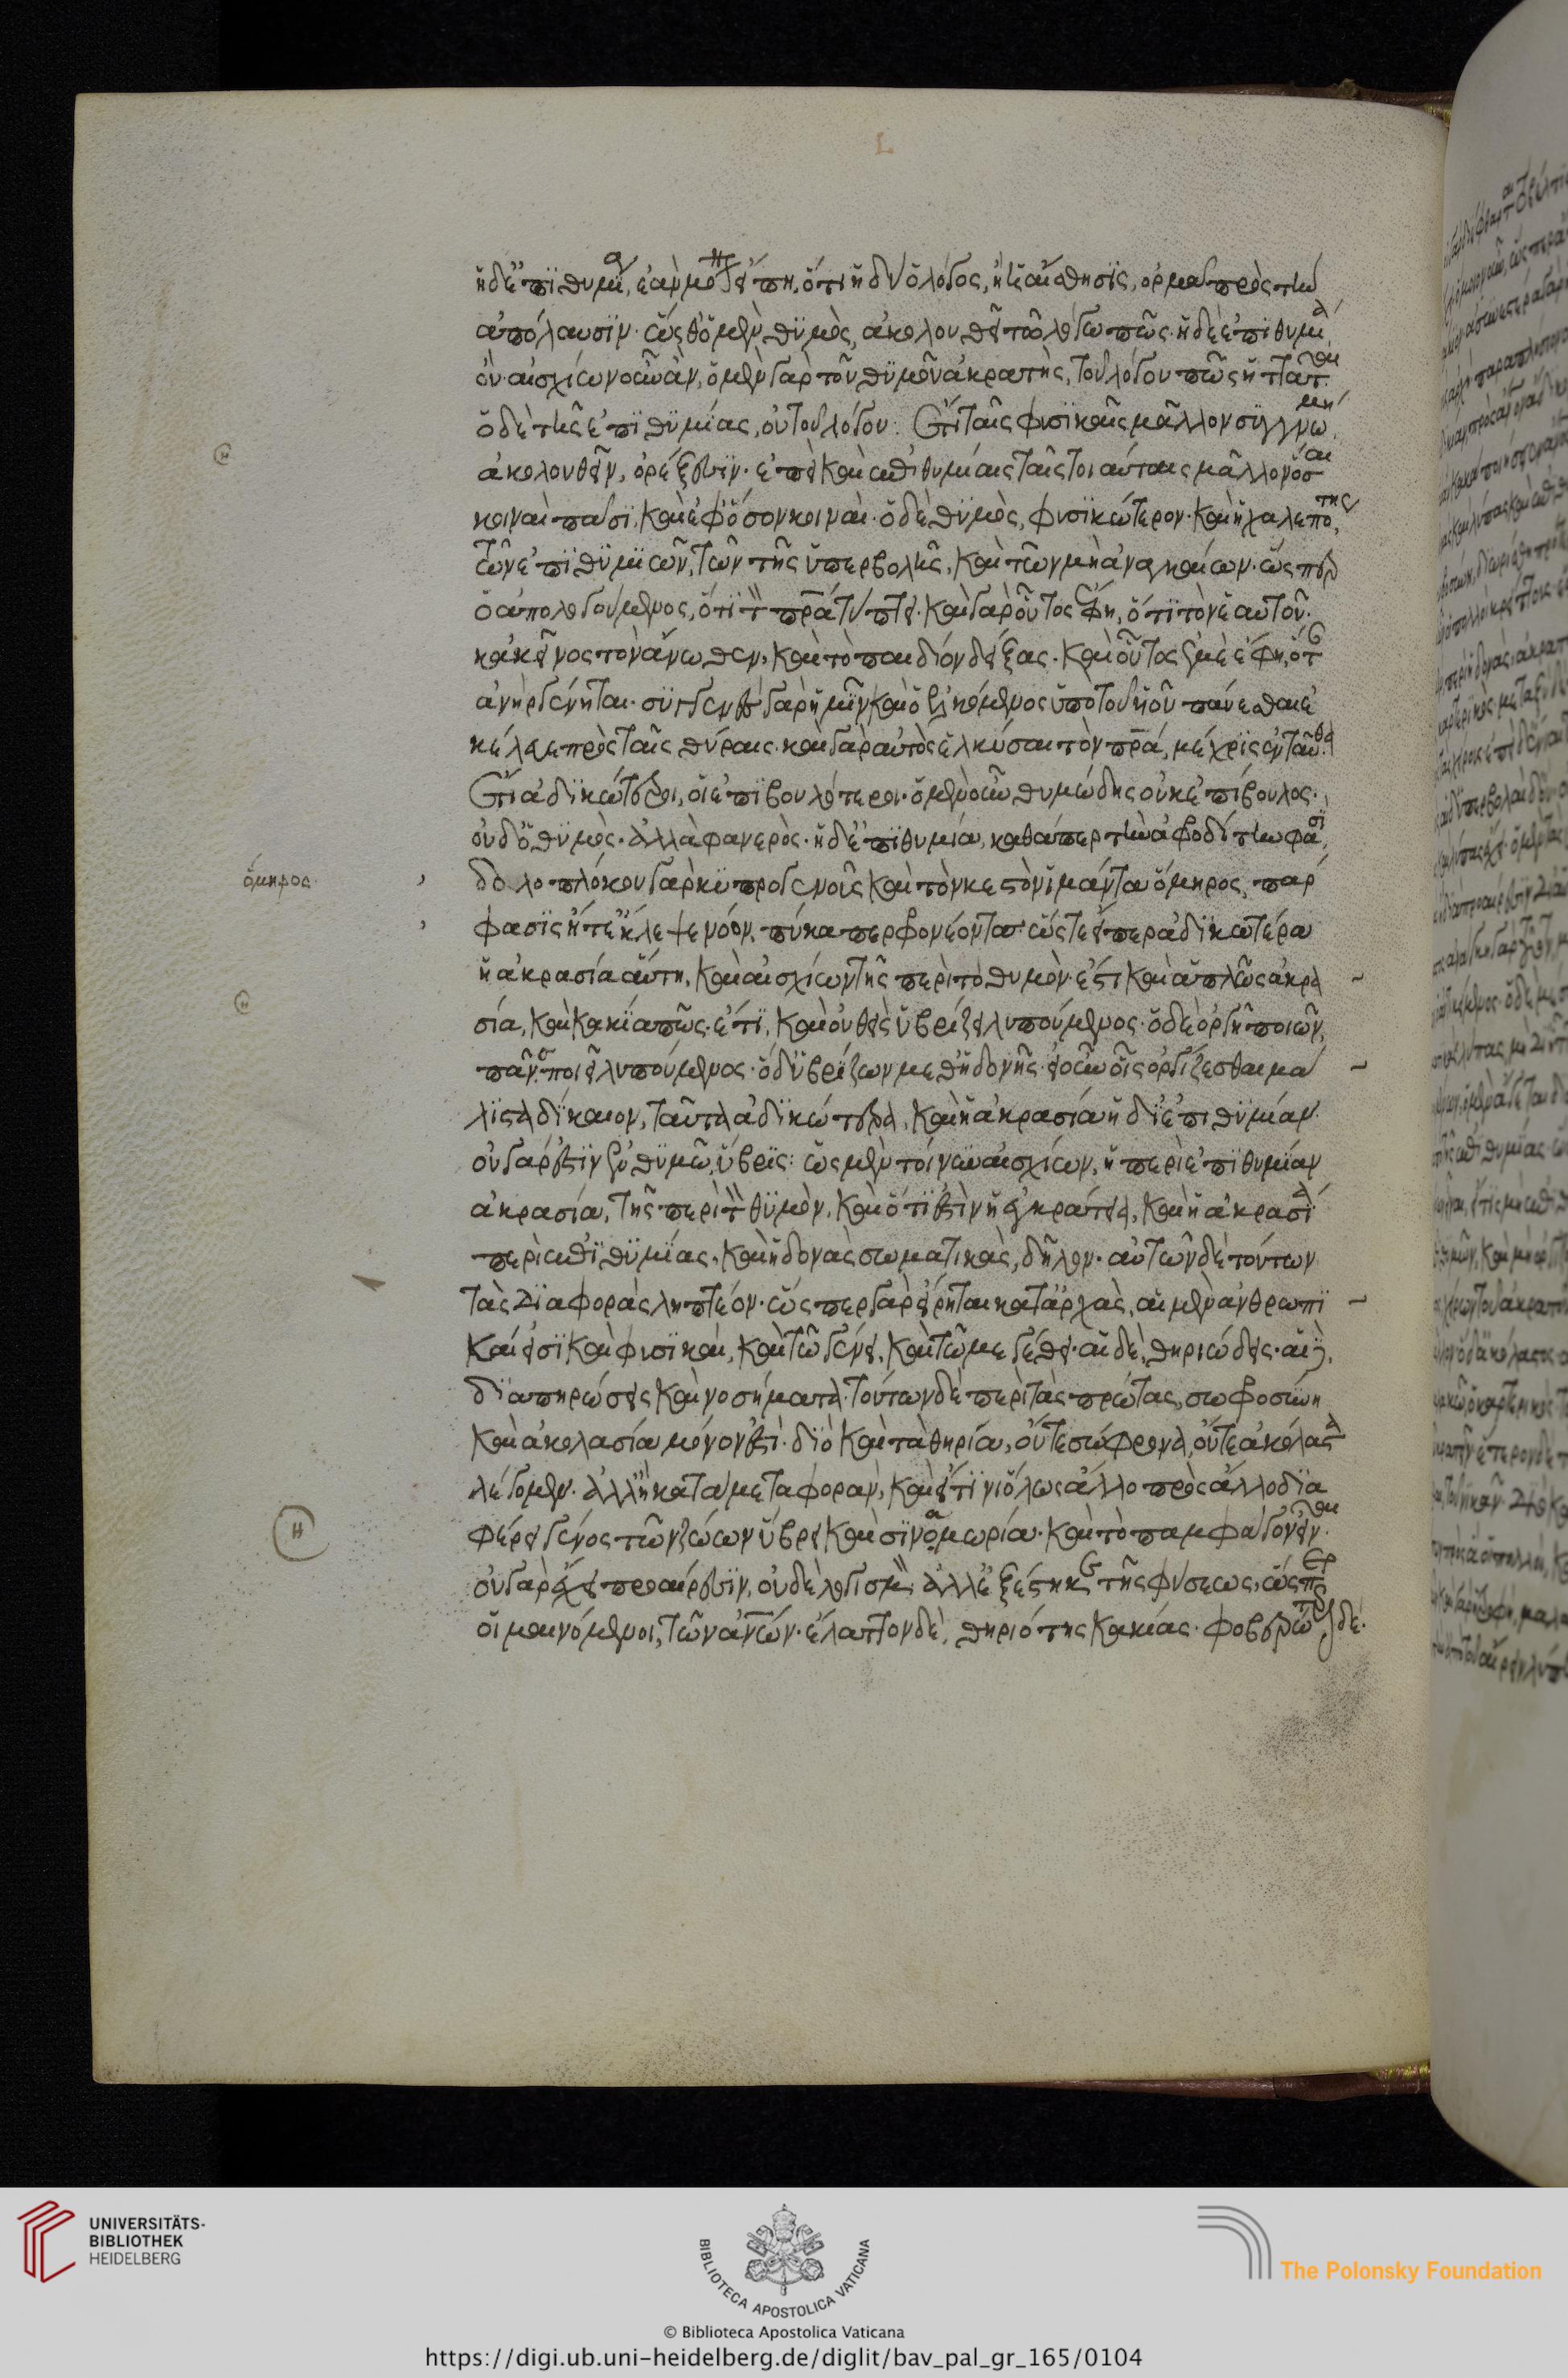 ἡ δ' ἐπιθυμία, ἐὰν μόνον εἴπῃ, ὅτι ἡδὺ ὁ λόγος, ἢ ἡ αἴσθησις, ὁρμᾶ πρὸς τὴν
ἀπόλαυσιν· ὥσθ' ὁ μὲν θυμὸς, ἀκολουθεῖ τῶ λόγω πῶς· ἡ δὲ ἐπιθυμία
οὐ· αἰσχίων οὖν, ὁ μὲν γὰρ τοῦ θυμοῦ ἀκρατὴς, τοῦ λόγου πῶς ἡττᾶται
ὁ δὲ τῆς ἐπιθυμίας, οὐ τοῦ λόγου· Ἔτι ταῖς φυσικαῖς μᾶλλον συγγνώμη
ἀκολουθεῖν, ὀρέξεσιν· ἐπεὶ καὶ ἐπιθυμίαις ταῖς τοιαύταις μᾶλλον ὅσαι
κοιναὶ πᾶσι, καὶ ἐφ' ὅσον κοιναί· ὁ δὲ θυμὸς, φυσικώτερον· καὶ ἡ χαλεπότης,
τῶν ἐπιθυμιῶν, τῶν τῆς ὑπερβολῆς, καὶ τῶν μὴ ἀναγκαίων· ὥσπερ
ὁ ἀπολογούμενος, ὅτι τὸν πρα τύπτει· καὶ γὰρ οὗτος ἔφη, ὅτι τὸν ἑαυτοῦ·
κἀκεῖνος τὸν ἄνωθεν, καὶ τὸ παιδίον δείξας· καὶ οὗτος ἐμὲ ἔφη, ὅταν
ἀνὴρ γένηται· συγγενὲς γὰρ ἡμῖν καὶ ὁ ἑλκόμενος ὑπὸ τοῦ υἱοῦ παύεσθαι ἐ
κέλευε πρὸς ταῖς θύραις· καὶ γὰρ αὐτὸς ἑλκύσαι τὸν πρα, μέχρις ἐνταῦθα·
Ἔτι ἀδικώτεροι, οἱ ἐπιβουλότεροι· ὁ μὲν οὖν θυμώδης οὐκ ἐπίβουλος·
οὐδ' ὁ θυμὸς· ἀλλὰ φανερὸς· ἡ δ' ἐπιθυμία, καθάπερ τὴν ἀφροδίτην φασί,
ὅμηρος
δολοπλόκου γὰρ κυπρογενοῦς καὶ τὸν κεστὸν ἱμάντα ὅμηρος, πάρ
φασις ἥ τ' ἔκλεψε νόον, πύκα περ φρονέοντα· ὥστε εἴπερ ἀδικωτέρα
ἡ ἀκρασία αὕτη, καὶ αἰσχίων τῆς περὶ τὸ θυμὸν· ἐστὶ καὶ ἁπλῶς ἀκρα
σία, καὶ κακία πῶς· ἔτι, καὶ οὐθεὶς ὑβρίζει λυπούμενος· ὁ δὲ ὀργῆ ποιῶν,
πᾶν· ποιεῖ λυπούμενος· ὁ δ' ὑβρίζων μεθ' ἡδονῆς· εἰ οὖν οἷς ὀργίζεσθαι μά
λιστα δίκαιον, ταῦτα ἀδικώτερα, καὶ ἡ ἀκρασία ἡ δι' ἐπιθυμίαν·
οὐ γάρ ἐστιν ἐν θυμῶ, ὕβρις: ὡς μὲν τοίνυν αἰσχίων, ἡ περὶ ἐπιθυμίαν
ἀκρασία, τῆς περὶ τὸν θυμὸν, καὶ ὅτι ἐστὶν ἡ ἐγκράτεια, καὶ ἡ ἀκρασία
περὶ ἐπιθυμίας, καὶ ἡδονὰς σωματικὰς, δῆλον· αὐτῶν δὲ τούτων
τὰς διαφορὰς ληπτέον· ὥσπερ γὰρ εἴρηται κατ' ἀρχὰς, αἱ μὲν ἀνθρωπι
καί εἰσι καὶ φυσικαί, καὶ τῶ γένει, καὶ τῶ μεγέθει· αἱ δὲ, θηριώδεις· αἱ δὲ,
διὰ πηρώσεις καὶ νοσήματα· τούτων δὲ περὶ τὰς πρώτας, σωφροσύνη
καὶ ἀκολασία μόνον ἐστὶ· διὸ καὶ τὰ θηρία, οὔτε σώφρονα, οὔτε ἀκόλαστα
λέγομεν· ἀλλ' ἢ κατὰ μεταφορὰν, καὶ εἴ τινι ὅλως ἄλλο πρὸς ἄλλο δια
φέρει γένος τῶν ζώων ὕβρει καὶ σιναμωρία· καὶ τὸ παμφάγον εἶναι·
οὐ γὰρ ἔχει προαίρεσιν, οὐδὲ λογισμὸν, ἀλλ' ἐξέστηκε τῆς φύσεως, ὥσπερ
οἱ μαινόμενοι, τῶν ἀνων· ἔλαττον δὲ, θηριότης κακίας· φοβερώτερον δέ·
UNIVERSITÄTS-
BIBLIOTHEK
HEIDELBERG
BIBLIOTECA APOSTOLICA VATICANA
© Biblioteca Apostolica Vaticana
The Polonsky Foundation
https://digi.ub.uni-heidelberg.de/diglit/bav_pal_gr_165/0104